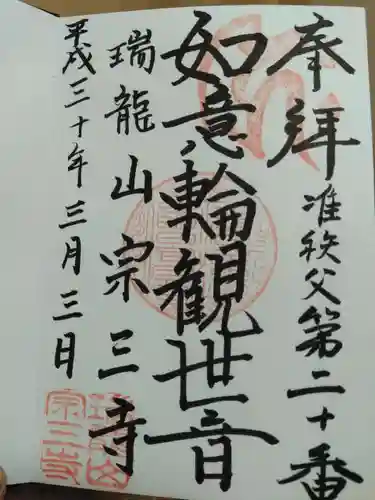 奉拝
准秩父第二十番
如意輪観世音
瑞龍山宗三寺
平成三十年三月三日
宗三寺